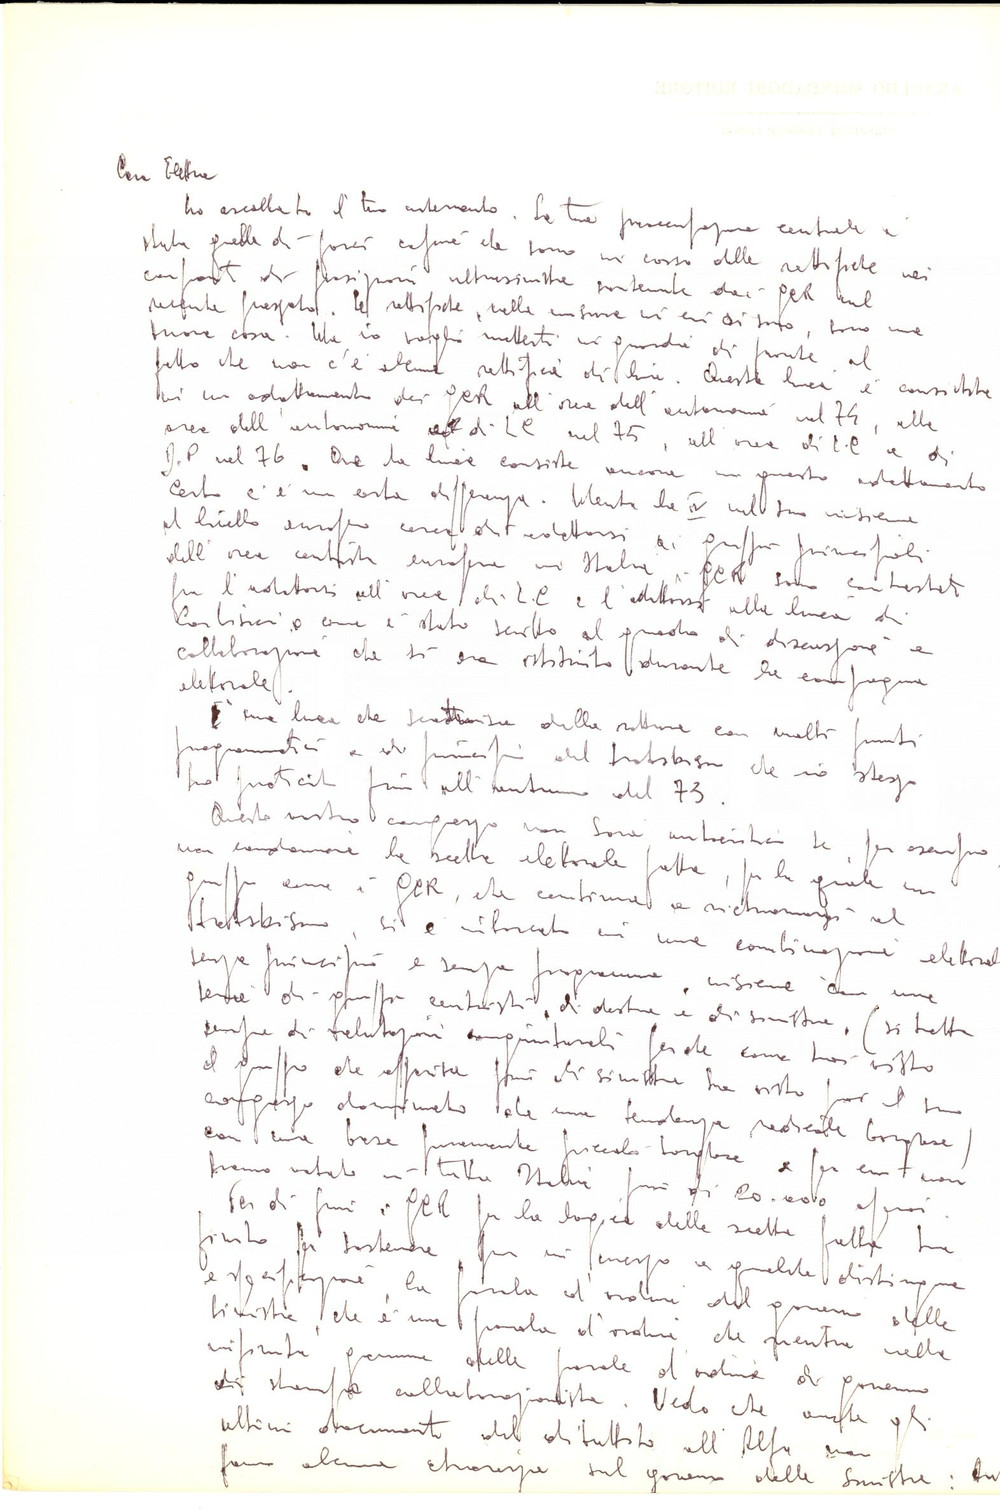 Cara Elettra
ho ascoltato il tuo intervento. La tua preoccupazione centrale è
stata quella di farci capire che sono in corso delle rettifiche nei
confronti di posizioni ultrasinistre sostenute dai GCR nel
recente passato. Le rettifiche, nella misura in cui ci sono, sono una
buona cosa. Ma io voglio metterti in guardia di fronte al
fatto che non c'è alcuna rettifica di linea. Questa linea è consistita
in un adattamento dei GCR all'area dell'autonomia nel 74, alla
area dell'autonomia e di LC nel 75, all'area di LC e di
D.P nel 76. Ora la linea consiste ancora in questo adattamento
Certo c'è una certa differenza. Mentre la IV nel suo insieme
al livello europeo cerca di adattarsi ai gruppi principali
dell'area centrista europea in Italia i GCR sono
per l'adattarsi all'area di L.C e l'adattarsi alla linea di
come è stato scritto al quadro di discussione e
collaborazione che si era istituito durante la campagna
elettorale.
È una linea che scaturisce dalla rottura con molti punti
programmatici e di principio del trotskismo che io stesso
ho praticato fino all'autunno del 73.
Questo vostro congresso non sarà se, per esempio,
non condannerà la scelta elettorale fatta, per la quale un
gruppo come i GCR, che continua a richiamarsi al
trotskismo, si è imbarcato in una combinazione elettorale
senza principi e senza programma, insieme con una
serie di gruppi centristi, di destra e di sinistra. (si tratta
sempre di valutazioni congiunturali perché come hai visto
il gruppo che appariva più di sinistra ha visto poi il suo
congresso dominato da una tendenza radicale borghese)
con una base puramente piccolo-borghese e per cui non
hanno votato in tutta Italia più di 20.000 operai.
Per di più i GCR per la logica della scelta fatta ha
finito per sostenere, pur in mezzo a qualche distinguo
e specificazione, la parola d'ordine del governo delle
sinistre, che è una parola d'ordine che rientra nella
infinita gamma delle parole d'ordine di governo
di stampo collaborazionista. Vedo che anche gli
ultimi documenti del dibattito all'Alfa non
fanno alcuna chiarezza sul governo delle sinistre: